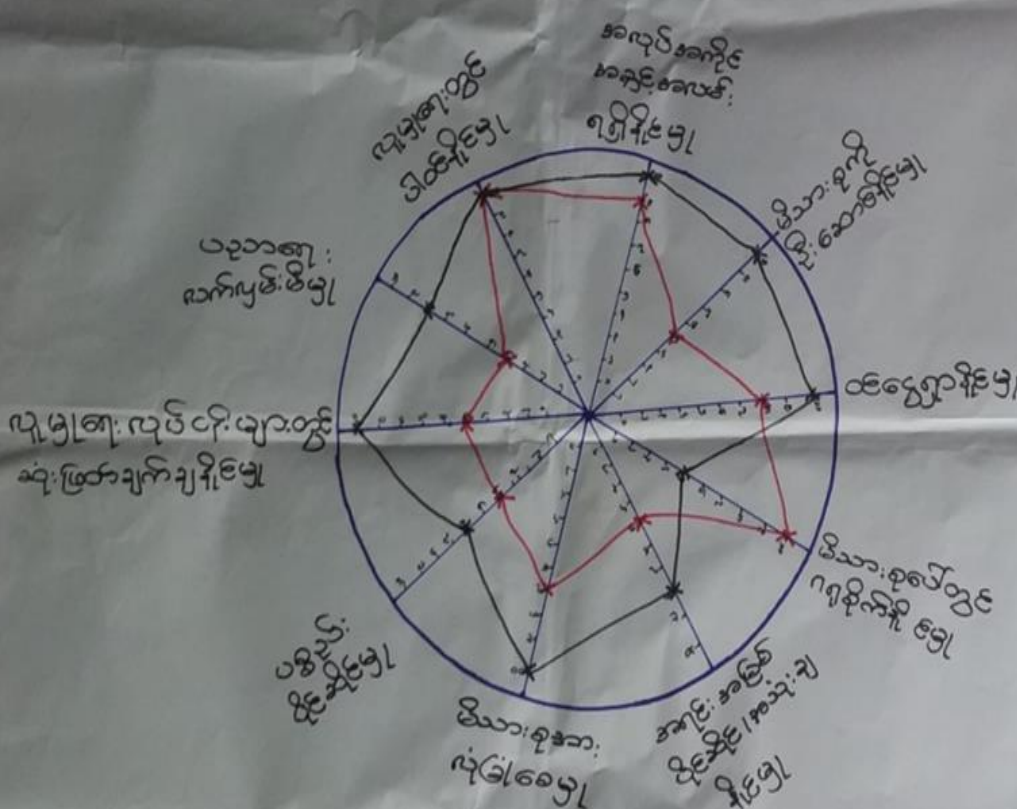 အလုပ်အကိုင်
အခွင့်အလမ်း
ရရှိနိုင်မှု
မိသားစုကို
ဦးဆောင်နိုင်မှု
ဝင်ငွေရှာနိုင်မှု
မိသားစုပေါ်တွင်
ဂရုစိုက်နိုင်မှု
အရင်းအမြစ်
ပိုင်ဆိုင်/အသုံးချ
နိုင်မှု
မိသားစုအား
လုံခြုံစေမှု
ပစ္စည်း
ပိုင်ဆိုင်မှု
လူမှုရေးလုပ်ငန်းများတွင်
ဆုံးဖြတ်ချက်ချနိုင်မှု
ပညာရေး
လက်လှမ်းမီမှု
လူမှုရေးတွင်
ပါဝင်နိုင်မှု